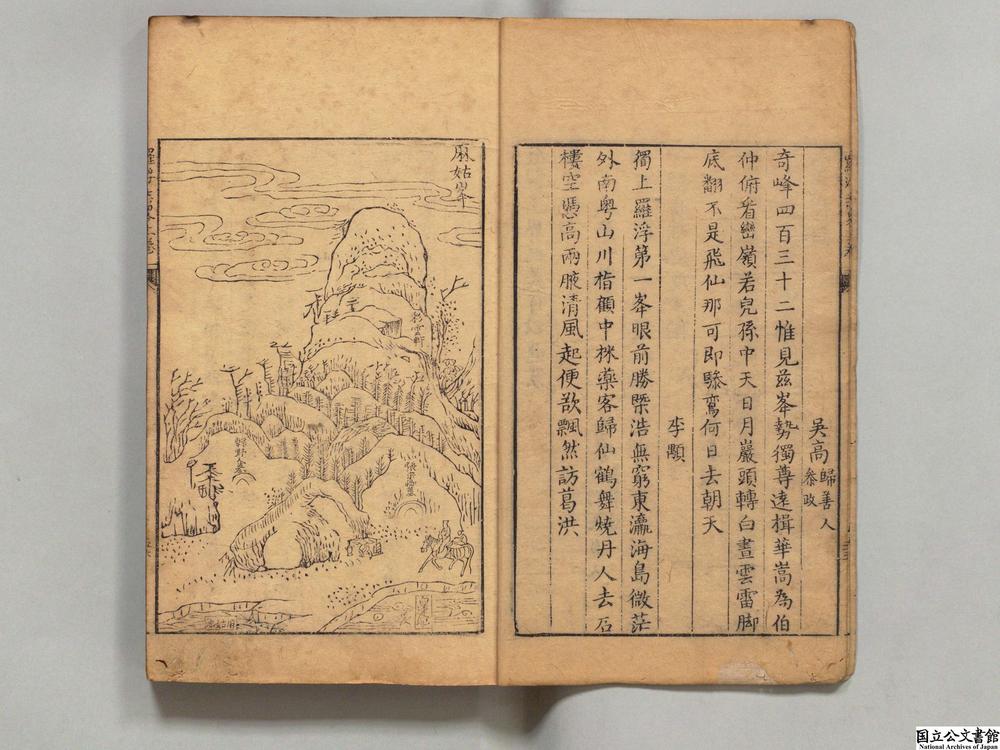 吳高歸善人參政
奇峰四百三十二惟見茲峯勢獨尊遠揖華嵩為伯
仲俯看巒嶺若兒孫中天日月巖頭轉白晝雲雷脚
底翻不是飛仙那可即驂鸞何日去朝天
李顒
獨上羅浮第一峯眼前勝槩浩無窮東瀛海島微茫
外南粤山川指顧中採藥客歸仙鶴舞燒丹人去石
樓空憑高兩腋清風起便欲飄然訪葛洪
麻姑峯
国立公文書館
National Archives of Japan